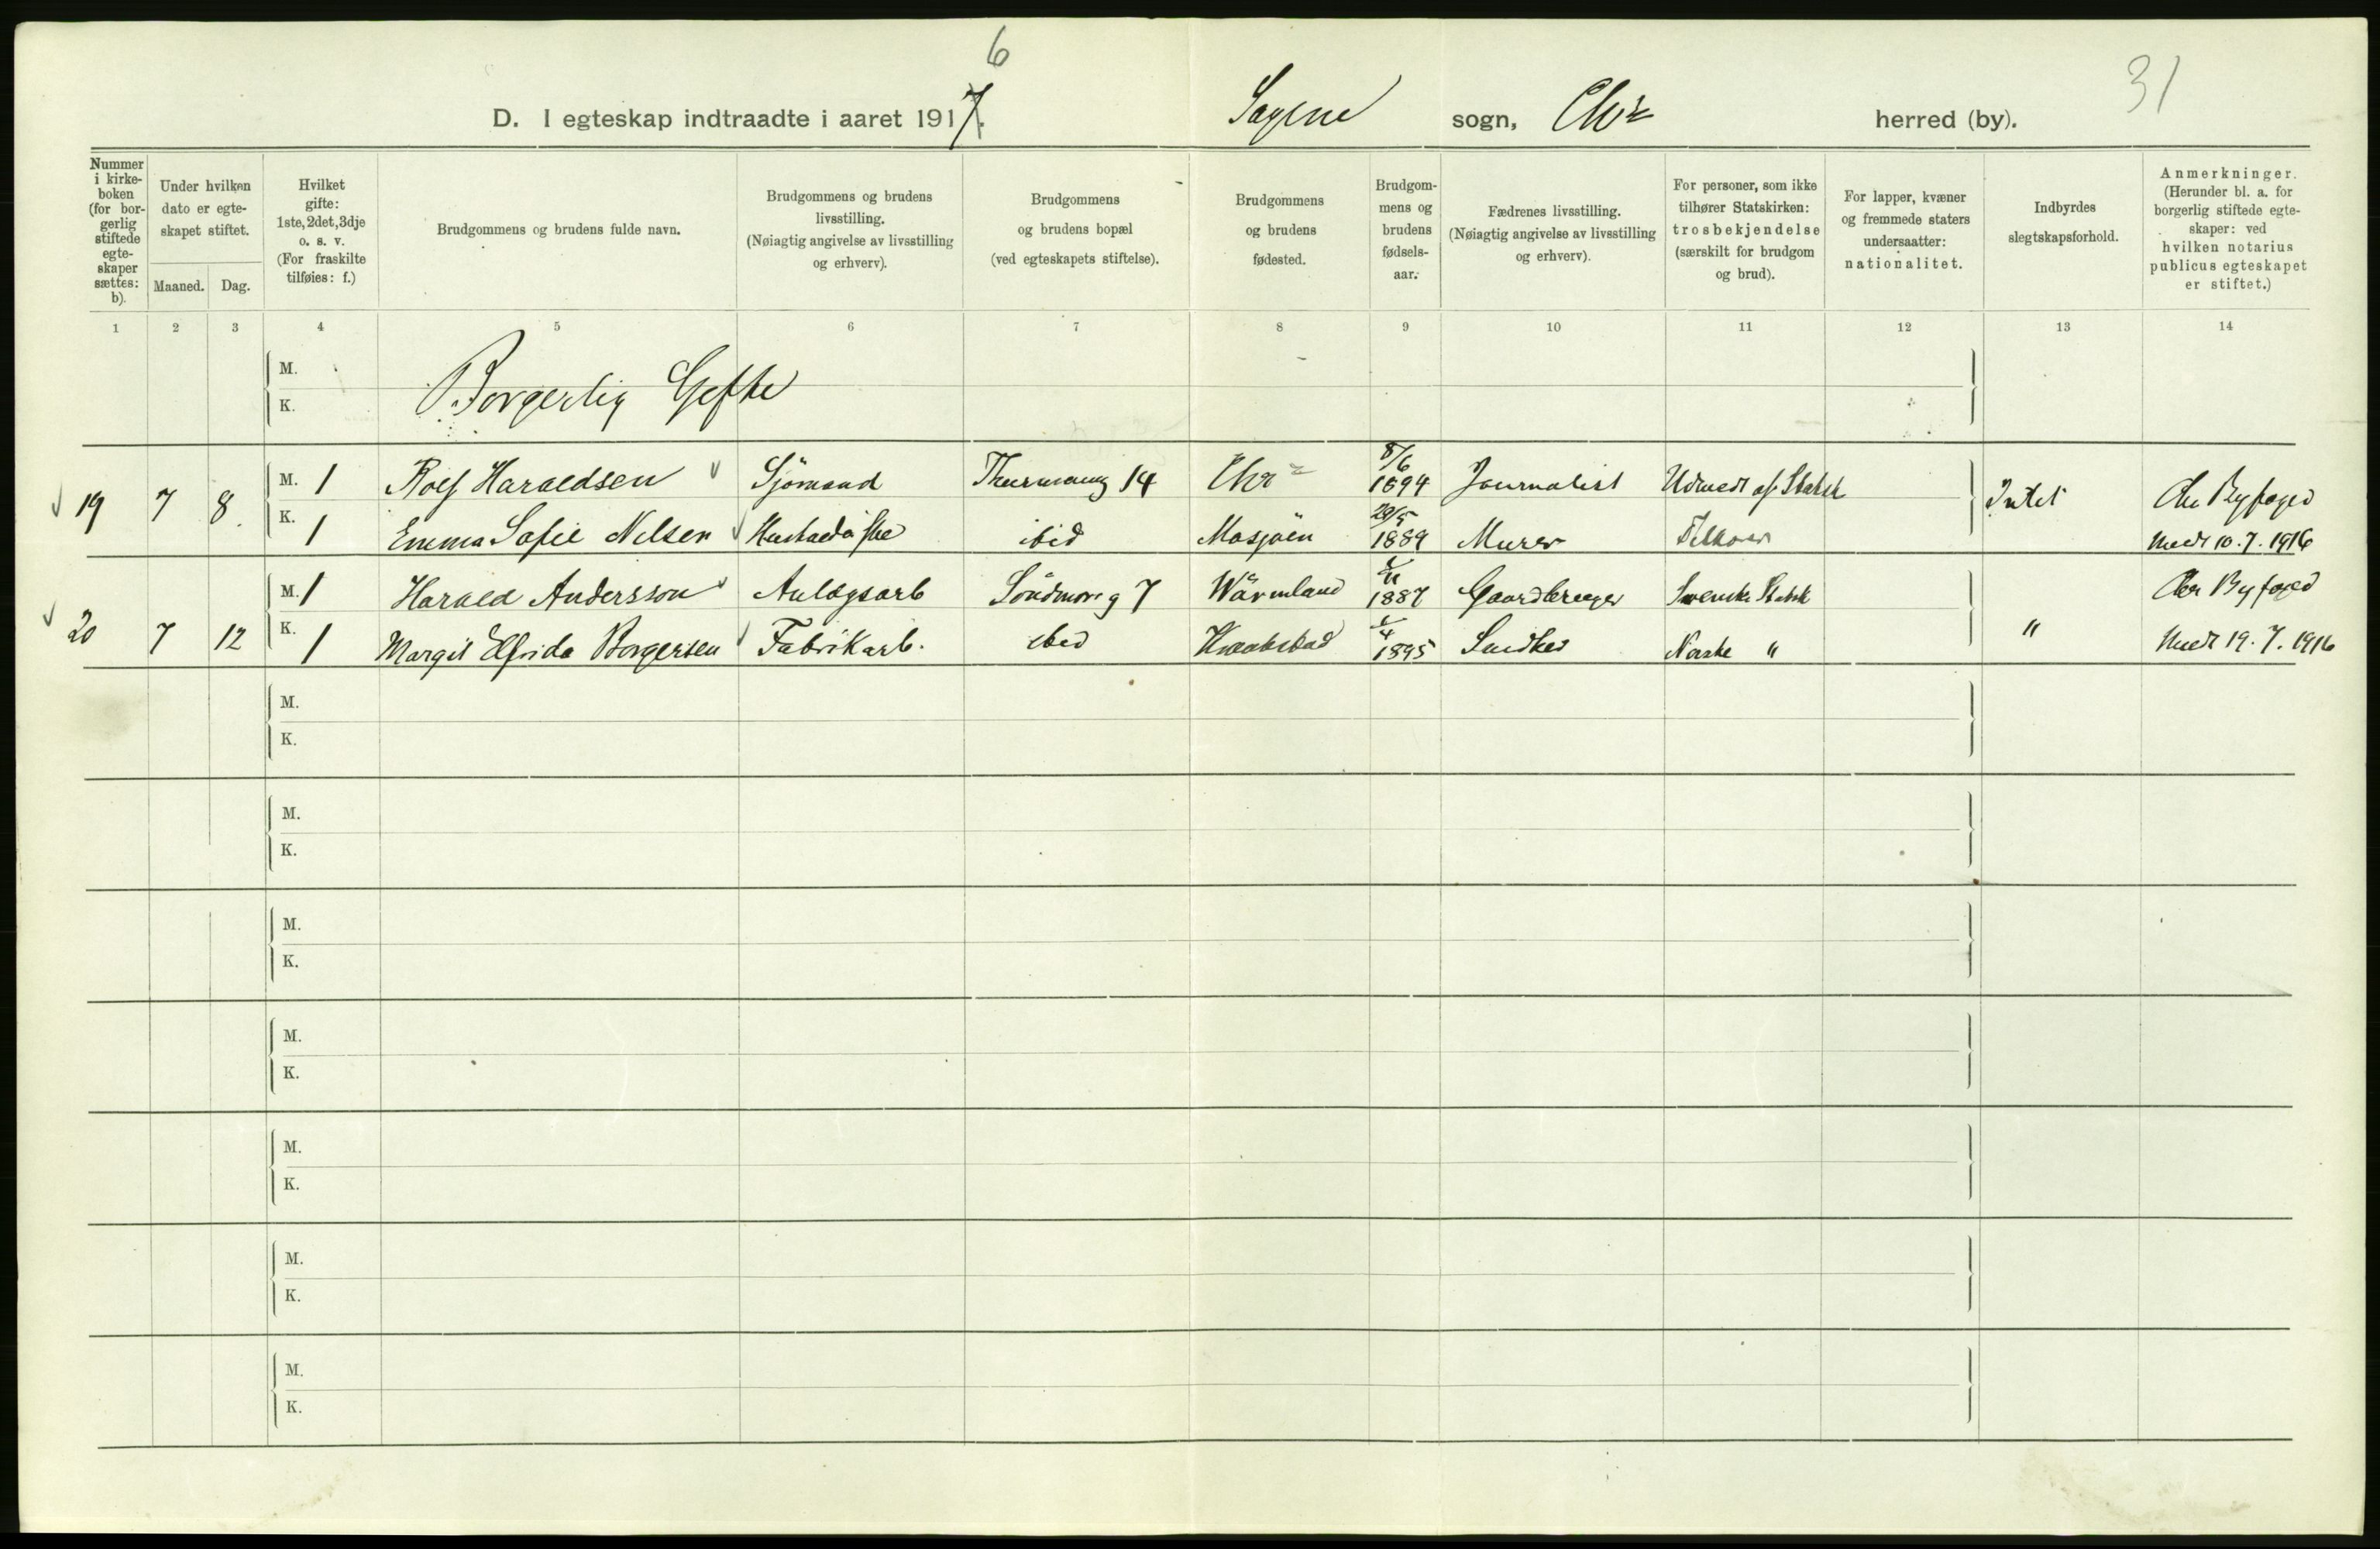 6
31
D. I egteskap indtraadte i aaret 1917. Sagene sogn, Chr herred (by).
Nummer i kirke-boken (for bor-gerlig stiftede egte-skaper sættes: b).
Under hvilken dato er egte-skapet stiftet.
Maaned. Dag.
Hvilket gifte: 1ste, 2det, 3dje o. s. v. (For fraskilte tilføies: f.)
Brudgommens og brudens fulde navn.
Brudgommens og brudens livsstilling. (Nøiagtig angivelse av livsstilling og erhverv).
Brudgommens og brudens bopæl (ved egteskapets stiftelse).
Brudgommens og brudens fødested.
Brudgom-mens og brudens fødsels-aar.
Fædrenes livsstilling. (Nøiagtig angivelse av livsstilling og erhverv).
For personer, som ikke tilhører Statskirken: trosbekjendelse (særskilt for brudgom og brud).
For lapper, kvæner og fremmede staters undersaatter: nationalitet.
Indbyrdes slegtskapsforhold.
Anmerkninger. (Herunder bl. a. for borgerlig stiftede egte-skaper: ved hvilken notarius publicus egteskapet er stiftet.)
1 2 3 4 5 6 7 8 9 10 11 12 13 14
M.
K.
Borgerlig Gifte
19 7 8. M. 1 Rolf Haraldsen Sjömand Thurmanng 14 Chr 8/6 1894 Journalist Udmedt af Statsk Intet Chr Byfoged
K. 1 Emma Sofie Nilsen ibid Mosjöen 29/5 1889 Murer Medt 10.7.1916
20 7 12 M. 1 Harald Andersson Anlægsarb Söndmöreg 7 Wärmland 1887 Gaardbruger Svenske Statsk " Chr Byfoged
K. 1 Margit Elfrida Borgersen Fabrikarb. ibid Kraakstad 1895 Snedker Norske " Medt 19.7.1916
M.
K.
M.
K.
M.
K.
M.
K.
M.
K.
M.
K.
M.
K.